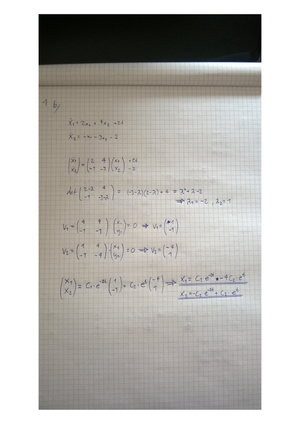 1. b)
x₁ = 2x₁ + 4x₂ + 2t
x₂ = -x₁ - 3x₂ - 2
(x₁ x₂) = (2 4 -1 -3)(x₁ x₂) + 2t - 2
det (2-λ 4 -1 -3-λ) = (-3-λ)(2-λ) + 4 = λ² + λ - 2
⇒ λ₁ = -2, λ₂ = 1
V₁ = (4 4 -1 -1)(x₁ x₂) = 0 ⇒ V₁ = (1 -1)
V₂ = (1 4 -1 -4)(x₁ x₂) = 0 ⇒ V₂ = (-4 1)
(x₁ x₂) = C₁·e⁻²ᵗ (1 -1) + C₂·eᵗ (-4 1) ⇒ x₁ = C₁·e⁻²ᵗ - 4C₂·eᵗ
x₂ = -C₁·e⁻²ᵗ + C₂·eᵗ